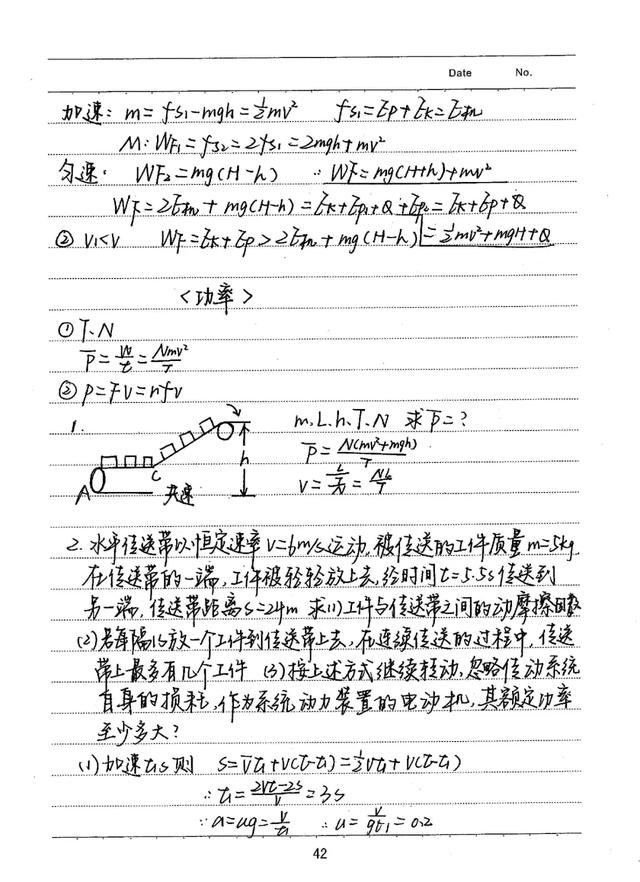 Date No.
加速: m = fs₁-mgh = ½mv² fs₁=Ep+Ek=E机
M: WF₁=fs₂=2fs₁=2mgh+mv²
匀速: WF₂=mg(H-h) ∴WF=mg(H+h)+mv²
WF=2E机+mg(H-h)=Ek+Ep₁+Q+Ep₂=Ek+Ep+Q
② v₁<v WF=Ek+Ep>2E机+mg(H-h)=½mv²+mgH+Q
<功率>
① T.N
P̅=W/t=Nmv²/T
② p=Fv=nfv
1.
m.L.h.T.N 求P̅=?
P̅=N(mv²+mgh)/T
h
C
A 共速
2. 水平传送带以恒定速率v=6m/s运动,被传送的工件质量m=5kg
在传送带的一端,工件被轻轻放上去,经时间t=5.5s传送到
另一端,传送带距离s=24m 求(1)工件与传送带之间的动摩擦因数
(2)若每隔1s放一个工件到传送带上去,在连续传送的过程中,传送
带上最多有几个工件 (3)按上述方式继续转动,忽略传动系统
自身的损耗,作为系统动力装置的电动机,其额定功率
至少多大?
(1)加速t₁s 则 s=v̅t₁+v(t-t₁)=½vt₁+v(t-t₁)
∴t₁=2vt-2s/v=3s
∵a=ug=v/t₁ ∴u=v/gt₁=0.2
42